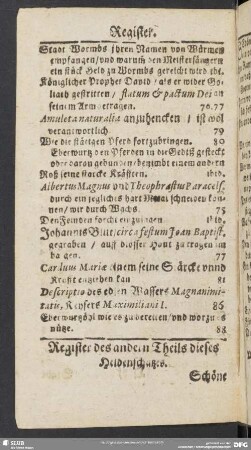 Register.
Stadt Wormbs ihren Namen von Würmen
empfangen/ und warumb den Meistersängern
ein stück Geld zu Wormbs gereicht wird ibi.
Königlicher Prophet David/ als er wider Go-
liath gestritten / statum & pactum Dei an
seinem Arm getragen. 76.77
Amuleta naturalia anzuhencken / ist wol
verantwortlich. 79
Wie die stättigen Pferd fortzubringen. 80
Eberwurtz den Pferden in die Gebiß gesteckt
oder daran gebunden/ benimbt einem andern
Roß seine starcke Kräfften. ibid.
Albertus Magnus und Theophrastus Paracels.
durch ein jegliches hart Metal schneiden kön-
nen/ wie durch Wachs. 75
Den Feinden
Johannis Blut, circa festum Joan Baptist.
gegraben / auff blosser Haut zu tragen
77
Carduus Mariæ einem seine Stärcke unnd
Krafft entziehen kan 81
Descriptio des edlen Wassers Magnanimi-
tatis, Keysers Maximiliani I. 86
Eberwurtzöhl wie es zu bereiten/ und worzu es
nütze. 88
Register des andern Theils dieses
Heldenschatzes.
Schöne
SLUB
DFG